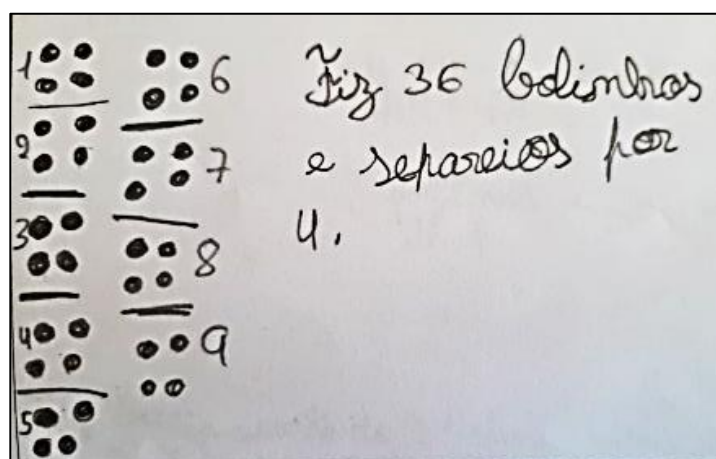 1
2
3
4
5
6
7
8
9
Fiz 36 bolinhas
e separeios por
4.